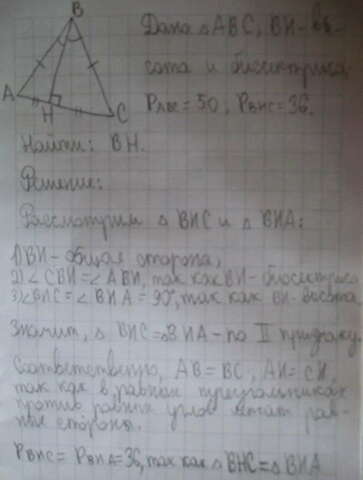 B
Дана △ABC, BH - вы-
сота и биссектриса.
A
H
C
P ABC = 50, P BHC = 36.
Найти: BH.
Решение:
Рассмотрим △ BHC и △ BHA:
1) BH - общая сторона,
2) ∠ CBH = ∠ ABH, так как BH - биссектриса
3) ∠ BHC = ∠ BHA = 90°, так как BH - высота
Значит, △ BHC = △ BHA - по II признаку.
Соответственно, AB = BC, AH = CH,
так как в равных треугольниках
против равных углов лежат рав-
ные стороны.
P BHC = P BHA = 36, так как △ BHC = △ BHA